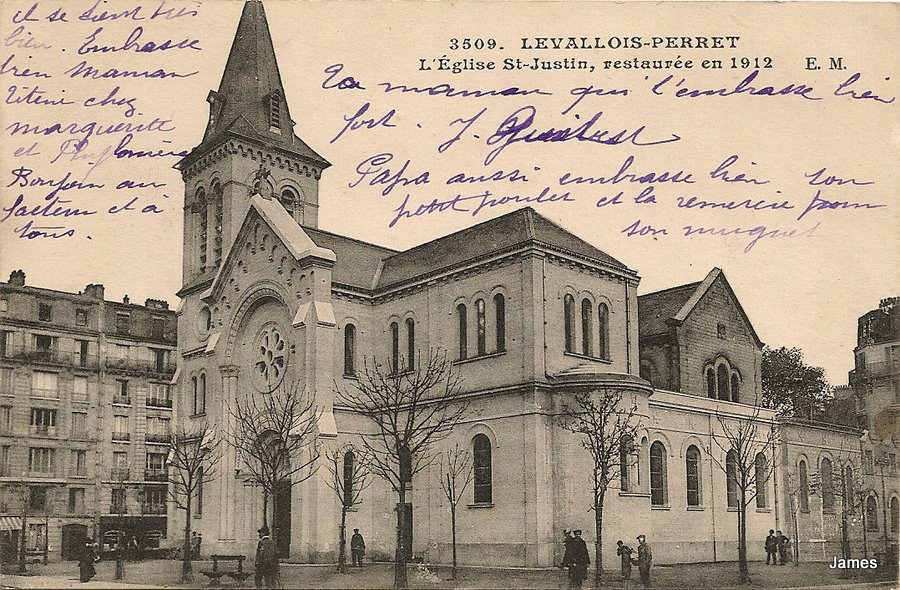 3509. LEVALLOIS-PERRET
L'Église St-Justin, restaurée en 1912 E. M.
il se sient très
bien. Embrasse
bien maman
Titine chez
marguerite
et
Bonjour au
facteur et à
tous.
Ta maman qui t'embrasse bien
fort. J.
Papa aussi embrasse bien son
petit poulet et la remercie pour
son muguet
James